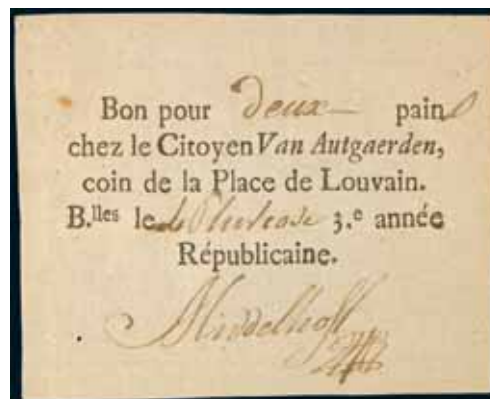 Bon pour deux pains
chez le Citoyen Van Autgaerden,
coin de la Place de Louvain.
B.lles le 3.e année
Républicaine.